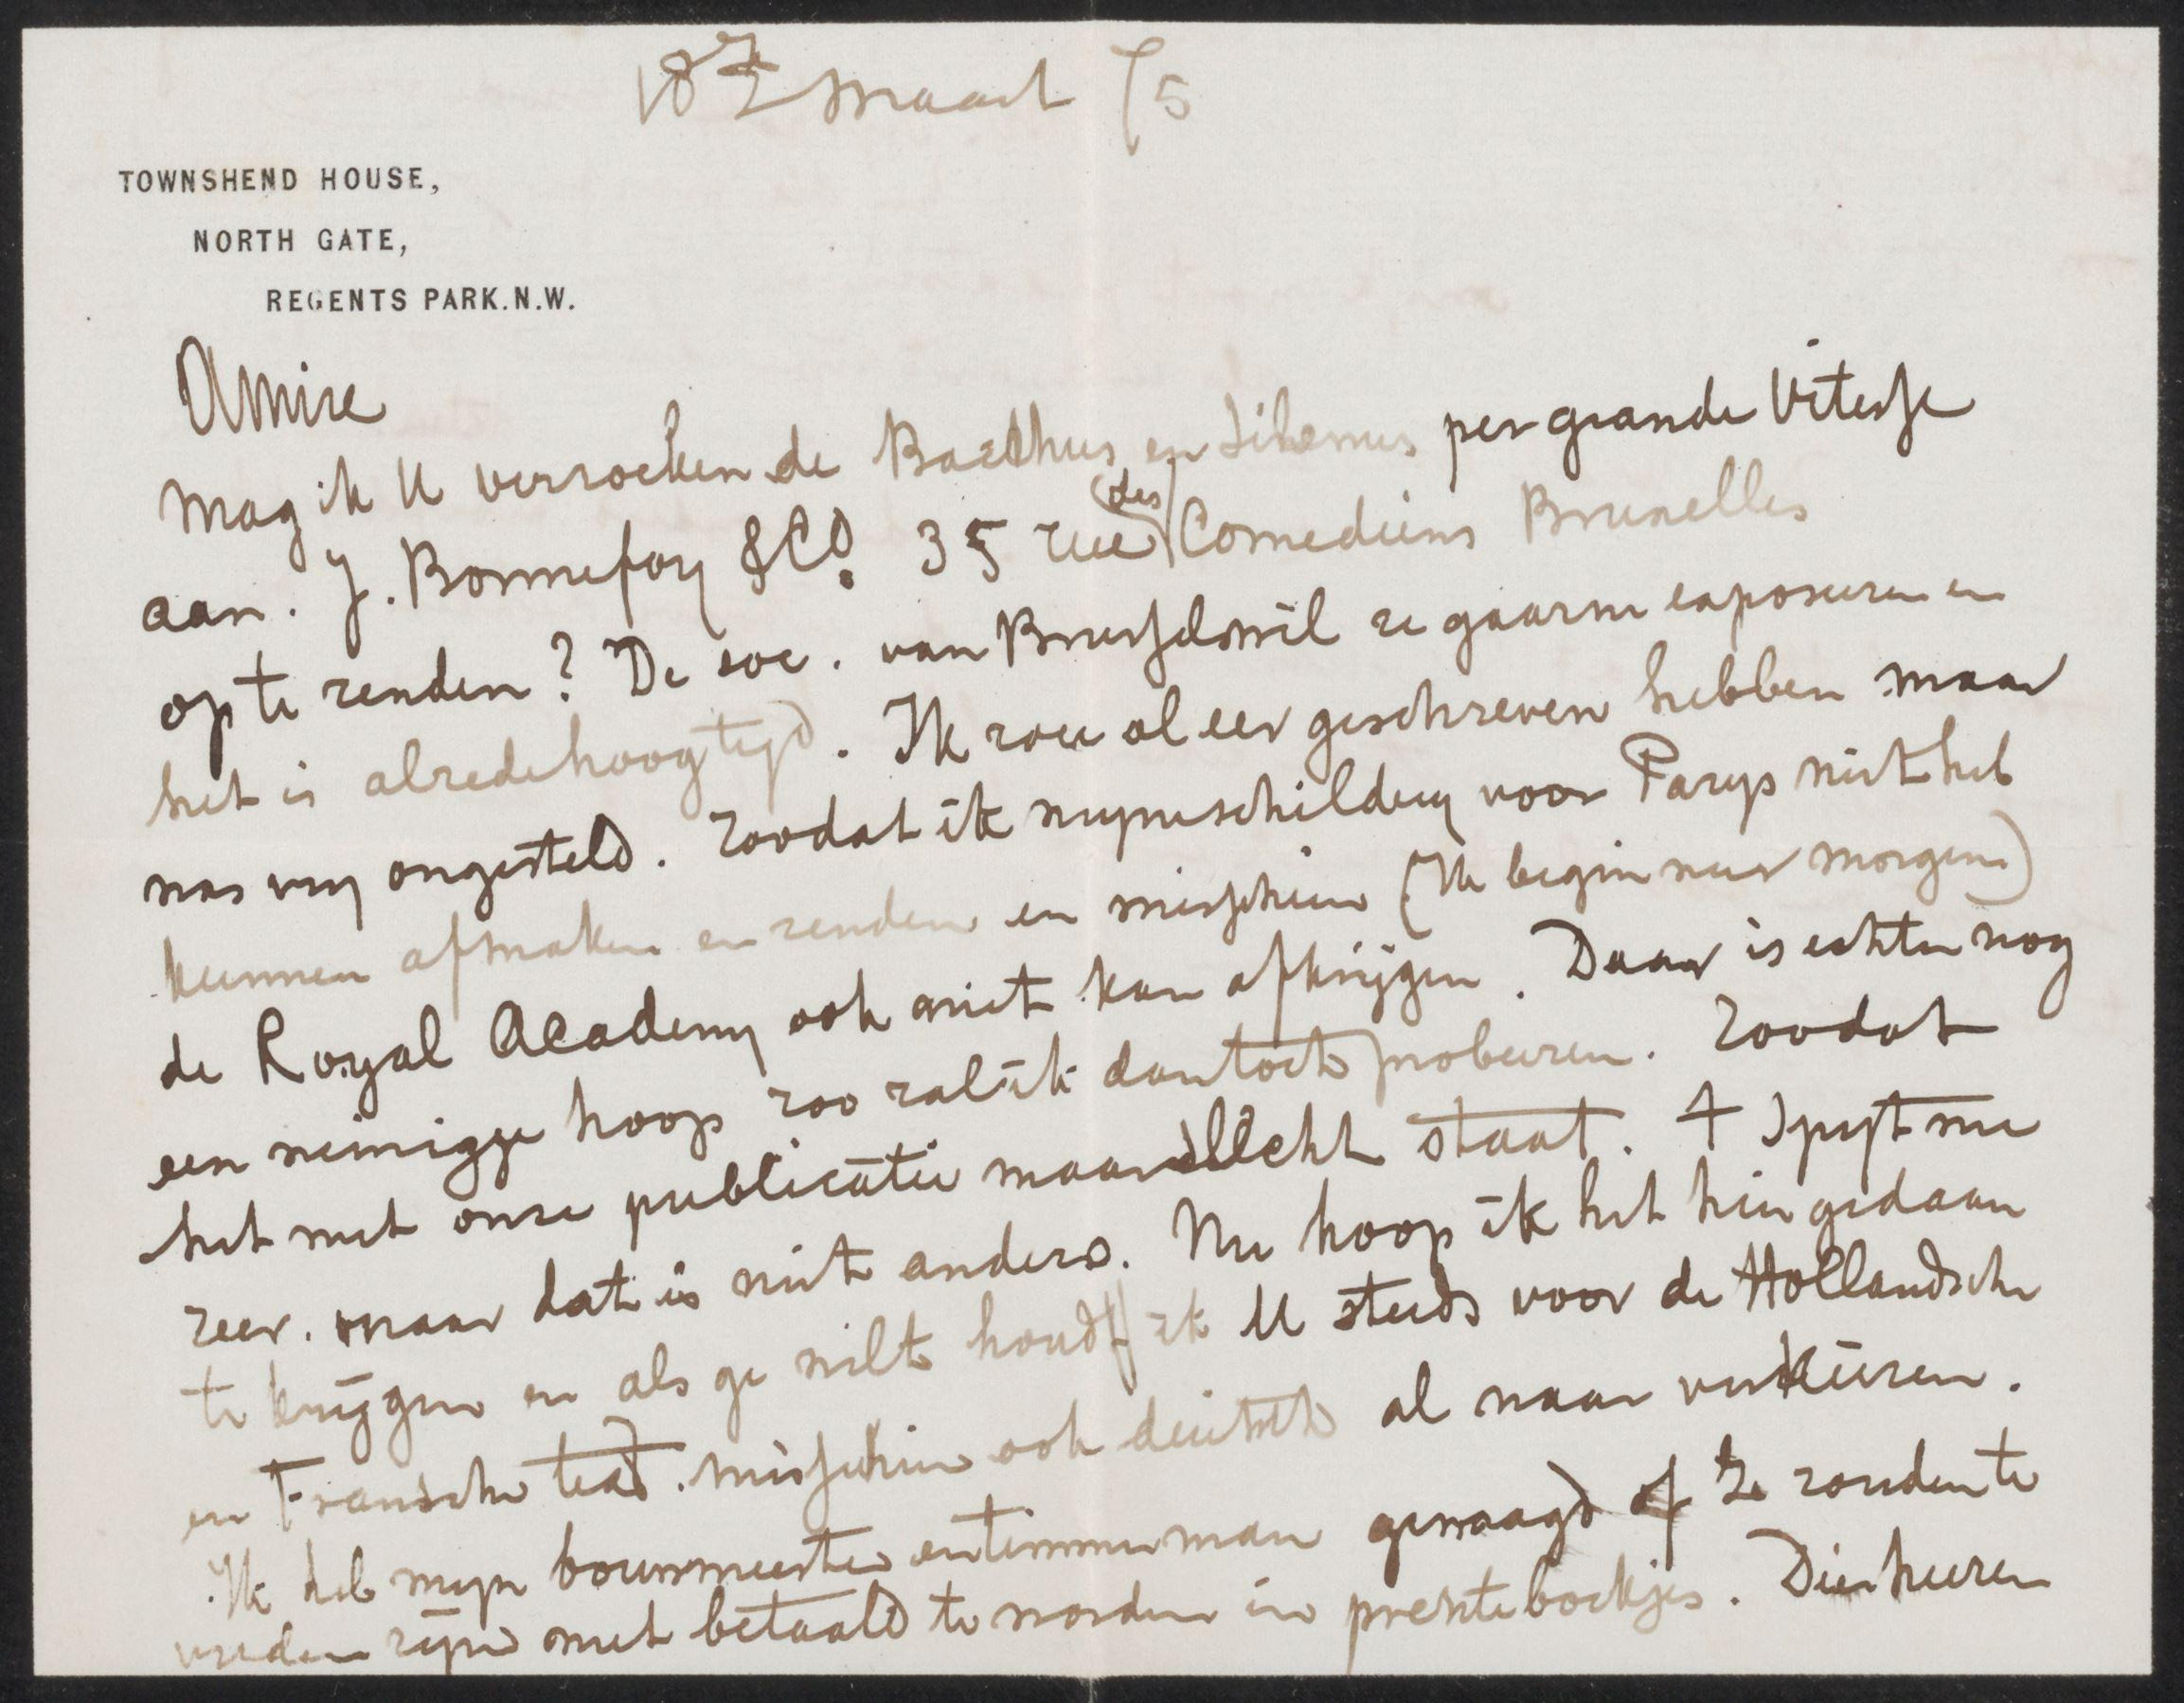 187 2 Maart 75
TOWNSHEND HOUSE,
NORTH GATE,
REGENTS PARK.N.W.
Amice
Mag ik U verzoeken de Bacchus en Silenus per grande Vitesse
aan. J. Bonnefoy & Co. 35 rue (des) Comediens Bruxelles
op te zenden? De soc. van Brussel wil ze gaarne exposeren en
het is alrede hoog tijd. Ik zou al eer geschreven hebben maar
was vrij ongesteld. Zoodat ik mijne schildery voor Parys niet heb
kunnen afmaken en zenden en misschien (Ik begin weer morgen)
de Royal Academy ook niet kan afkrijgen. Daar is echter nog
een weinigje hoop zoo zal ik dan toch proberen. Zoodat
het met onze publicatie maar slecht staat. T Spijt me
zeer. maar dat is niet anders. Nu hoop ik het hier gedaan
te krijgen en als ge wilt houdt ik U steeds voor de Hollandsche
en Fransche text. misschien ook deutsch al naar verkiezen.
Ik heb mijn bouwmeester en timmerman gevraagd of ze zouden te
vreden zijn met betaald te worden in prenteboekjes. Die heeren